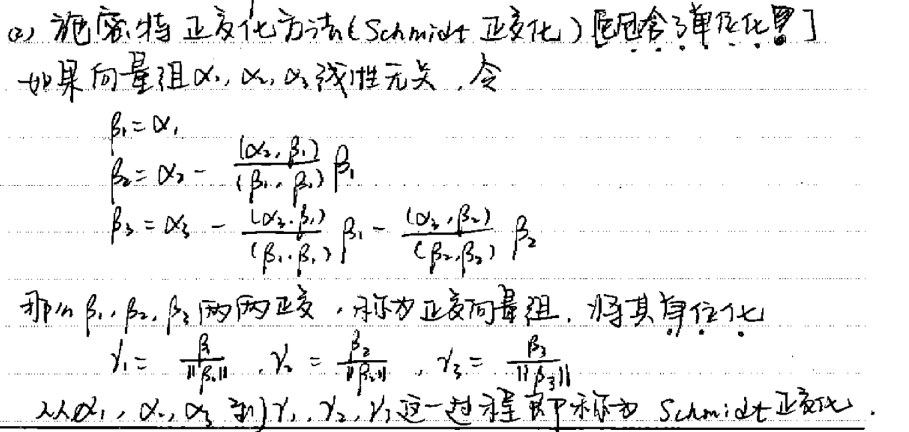 (2) 施密特正交化方法(Schmidt 正交化) [包含了单位化!]
如果向量组α₁, α₂, α₃线性无关, 令
β₁ = α₁
β₂ = α₂ - (α₂, β₁)/(β₁, β₁) β₁
β₃ = α₃ - (α₃, β₁)/(β₁, β₁) β₁ - (α₃, β₂)/(β₂, β₂) β₂
那么 β₁, β₂, β₃ 两两正交, 称为正交向量组, 将其单位化
γ₁ = β₁/||β₁||, γ₂ = β₂/||β₂||, γ₃ = β₃/||β₃||
从α₁, α₂, α₃ 到 γ₁, γ₂, γ₃ 这一过程即称为 Schmidt 正交化.